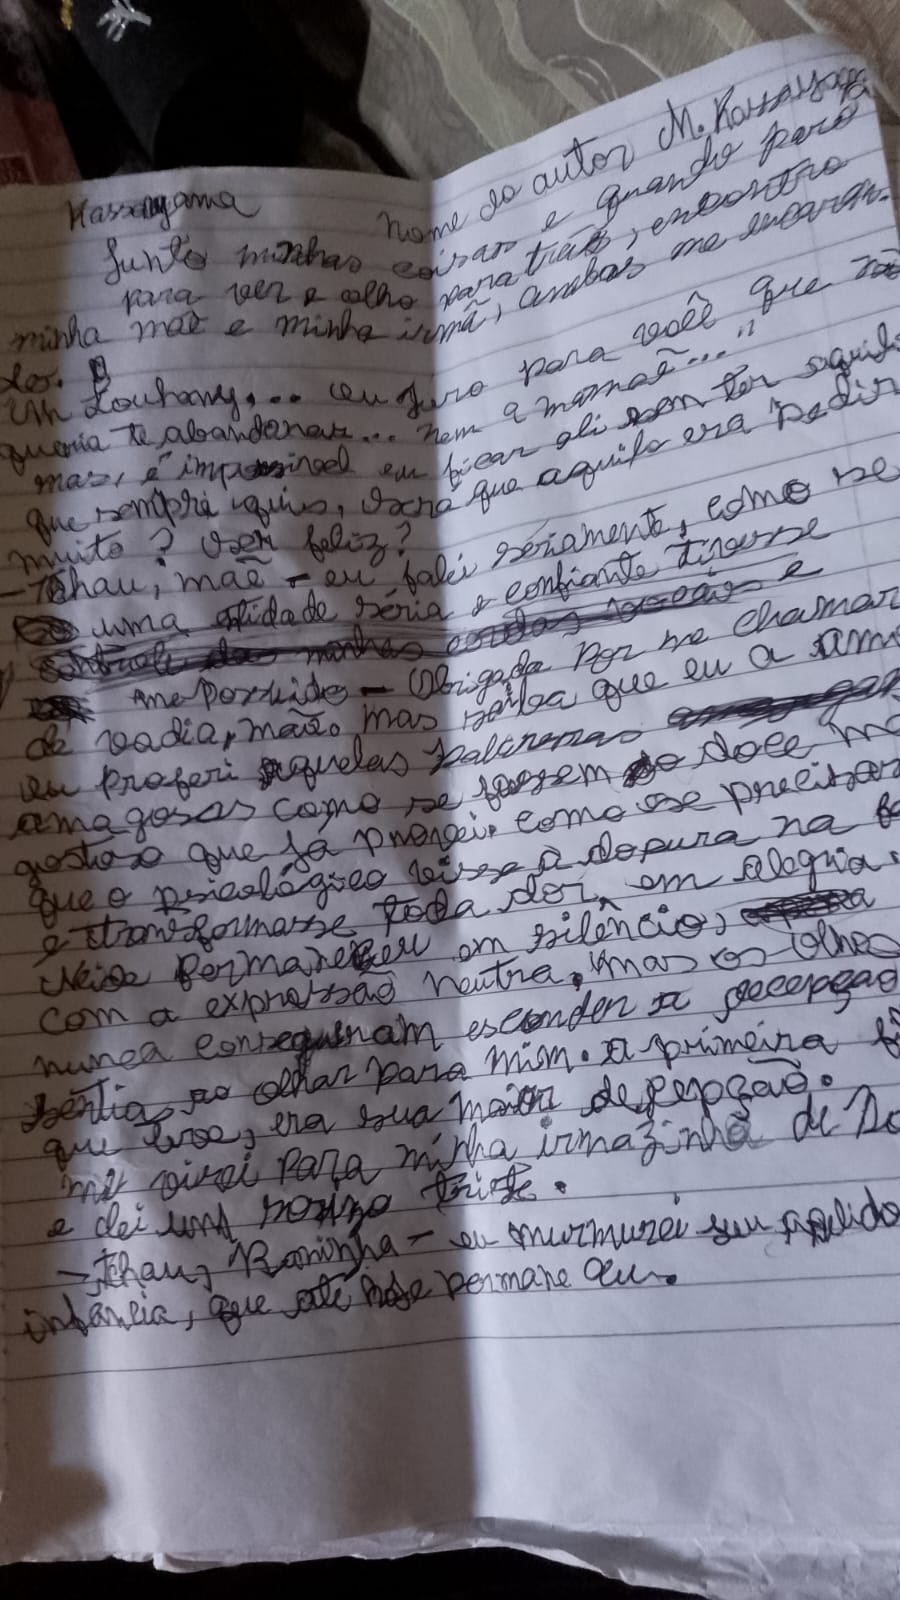 nome do autor M. Kassayama
Kassayama
Junto minhas coisas e quando paro
para ver e olho para trás, encontro
minha mãe e minha irmã, ambas me encaran-
do.
Louhany,... eu juro para você que não
queria te abandonar... nem a mamãe..."
mas, é impossível eu ficar ali sem ter seguido
que sempre quis, será que aquilo era pedir
muito? Ser feliz?
- Tchau, mãe - eu falei seriamente, como se
uma séria e confiante tivesse
me possuído - Obrigada por me chamar
de vadia, mãe, mas saiba que eu a amo
eu proferi aquelas palavras
amagosas como se fossem o doce ma
gostoso que já provei. como se precisas
que o psicológico visse a doçura na
e transformasse toda dor, em alegria.
Neide permaneceu em silêncio,
com a expressão neutra, mas os olhos
nunca conseguiram esconder a decepção
sentia ao olhar para mim. a primeira fi
que teve, era sua maior decepção.
me virei para minha irmazinha de
e dei um sorriso triste.
- Tchau, Baninha - eu murmurei seu apelido
infância, que até hoje permaneceu.